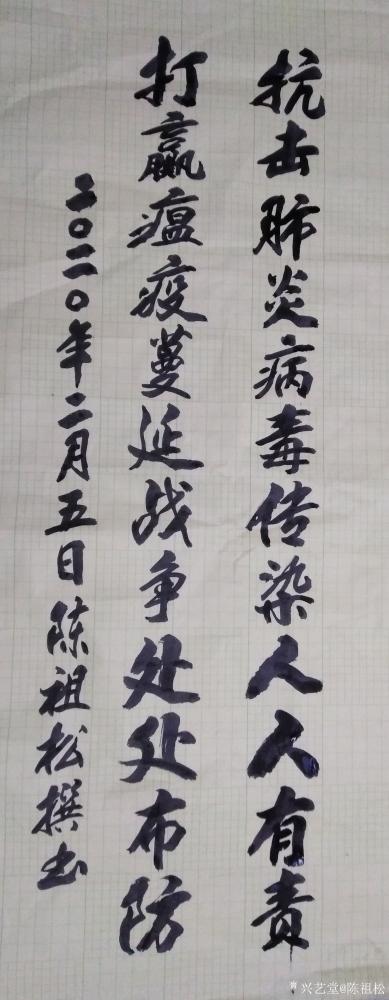 抗击肺炎病毒传染人人有责
打赢瘟疫蔓延战争处处布防
二〇二〇年二月五日陈祖松撰书
兴艺堂@陈祖松